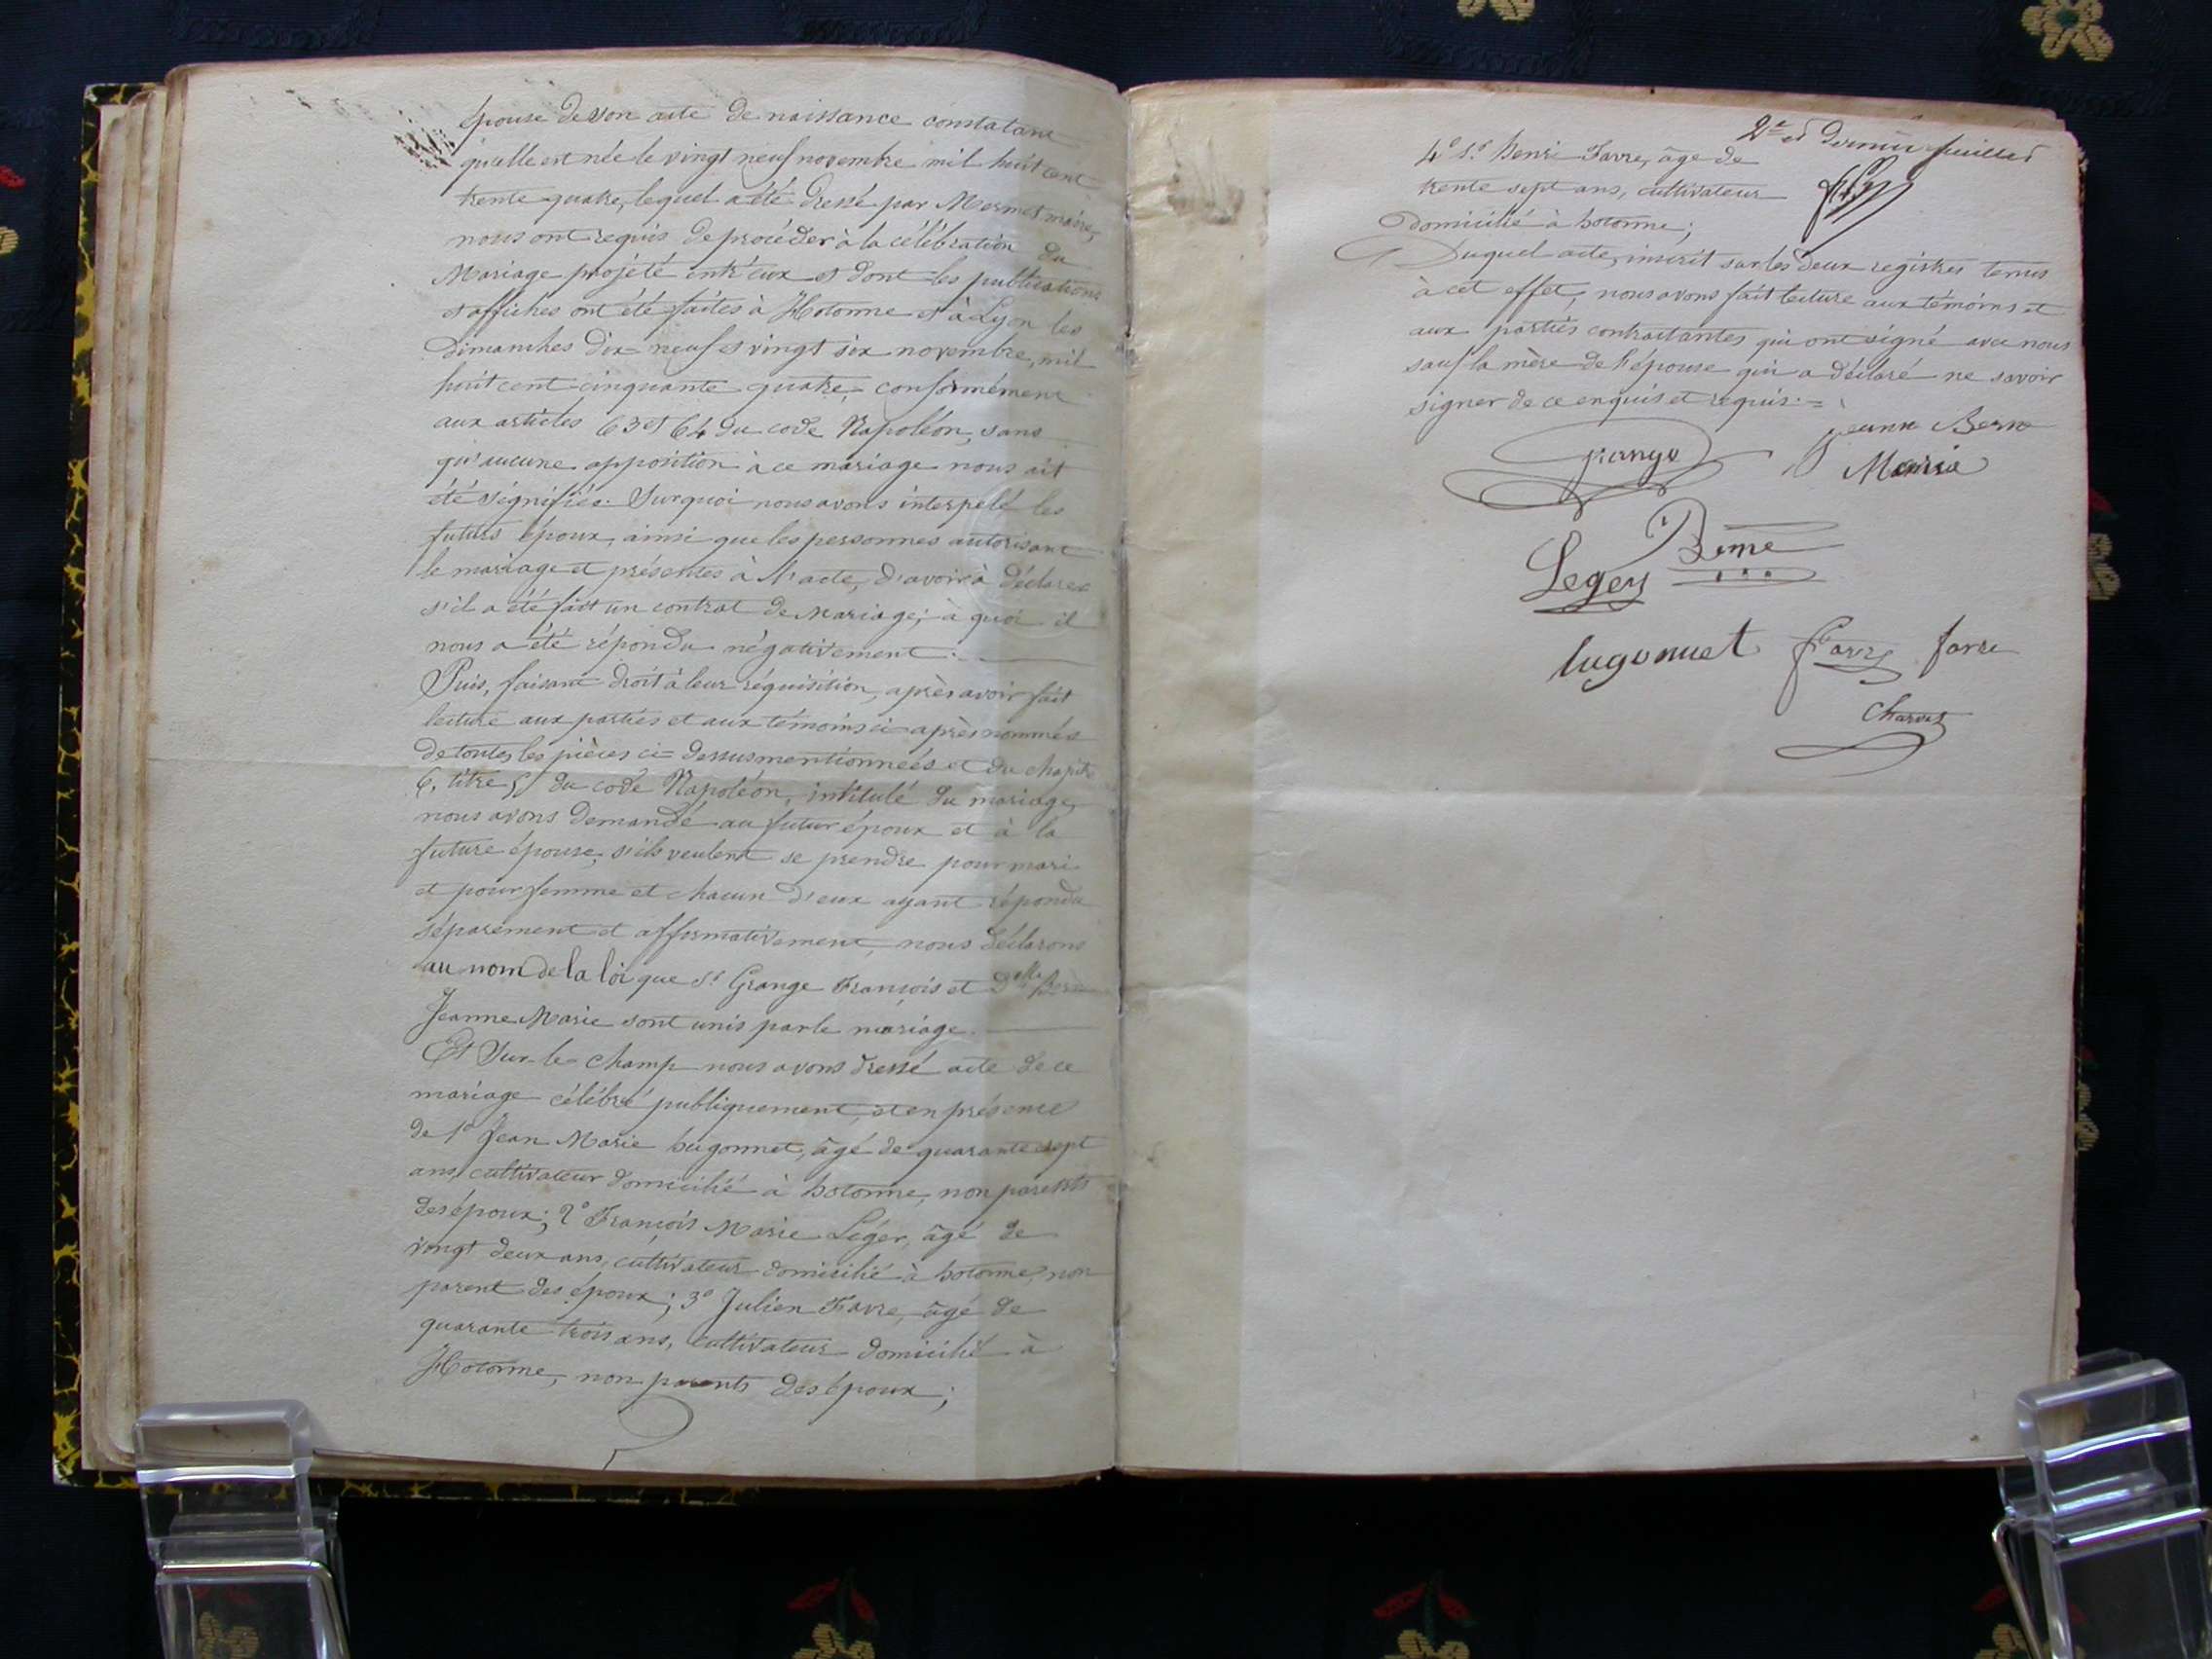 épouse de son acte de naissance constatant
qu'elle est née le vingt neuf novembre mil huit cent
trente quatre, lequel a été dressé par Mermet maire,
nous ont requis de procéder à la célébration du
Mariage projeté entr'eux et dont les publications
et affiches ont été faites à Hotonne et à Lyon les
dimanches dix-neuf et vingt six novembre, mil
huit cent cinquante quatre, conformément
aux articles 63 et 64 du code Napoléon, sans
qu'aucune opposition à ce mariage nous ait
été signifiée. Sur quoi nous avons interpelé les
futurs époux, ainsi que les personnes autorisant
le mariage et présentes à l'acte, d'avoir à déclarer
s'il a été fait un contrat de Mariage; à quoi il
nous a été répondu négativement.
Puis, faisant droit à leur réquisition, après avoir fait
lecture aux parties et aux témoins ci-après nommés
de toutes les pièces ci-dessus mentionnées et du chapitre
6, titre 5 du code Napoléon, intitulé du mariage,
nous avons demandé au futur époux et à la
future épouse, s'ils veulent se prendre pour mari
et pour femme et chacun d'eux ayant répondu
séparement et affirmativement, nous déclarons
au nom de la loi que Sr Grange François et Delle Berne
Jeanne Marie sont unis par le mariage.
Et Sur-le-champ nous avons dressé acte de ce
mariage célébré publiquement, et en présence
de 1° Jean Marie hugonnet, âgé de quarante sept
ans, cultivateur domicilié à hotonne, non parents
des époux; 2° François Marie Léger, âgé de
vingt deux ans, cultivateur domicilié à hotonne, non
parent des époux; 3° Julien Favre, âgé de
quarante trois ans, cultivateur domicilié à
Hotonne, non parents des époux;
2e et dernier feuillet
4° Sr henri Favre, âgé de
trente sept ans, cultivateur
domicilié à hotonne;
Duquel acte, inscrit sur les deux registres tenus
à cet effet, nous avons fait lecture aux témoins et
aux parties contractantes qui ont signé avec nous
sauf la mère de l'épouse qui a déclaré ne savoir
signer de ce enquis et requis.
Grange jeanne Berne
Marie
Berne
Leger
hugonnet favre favre
Charvet